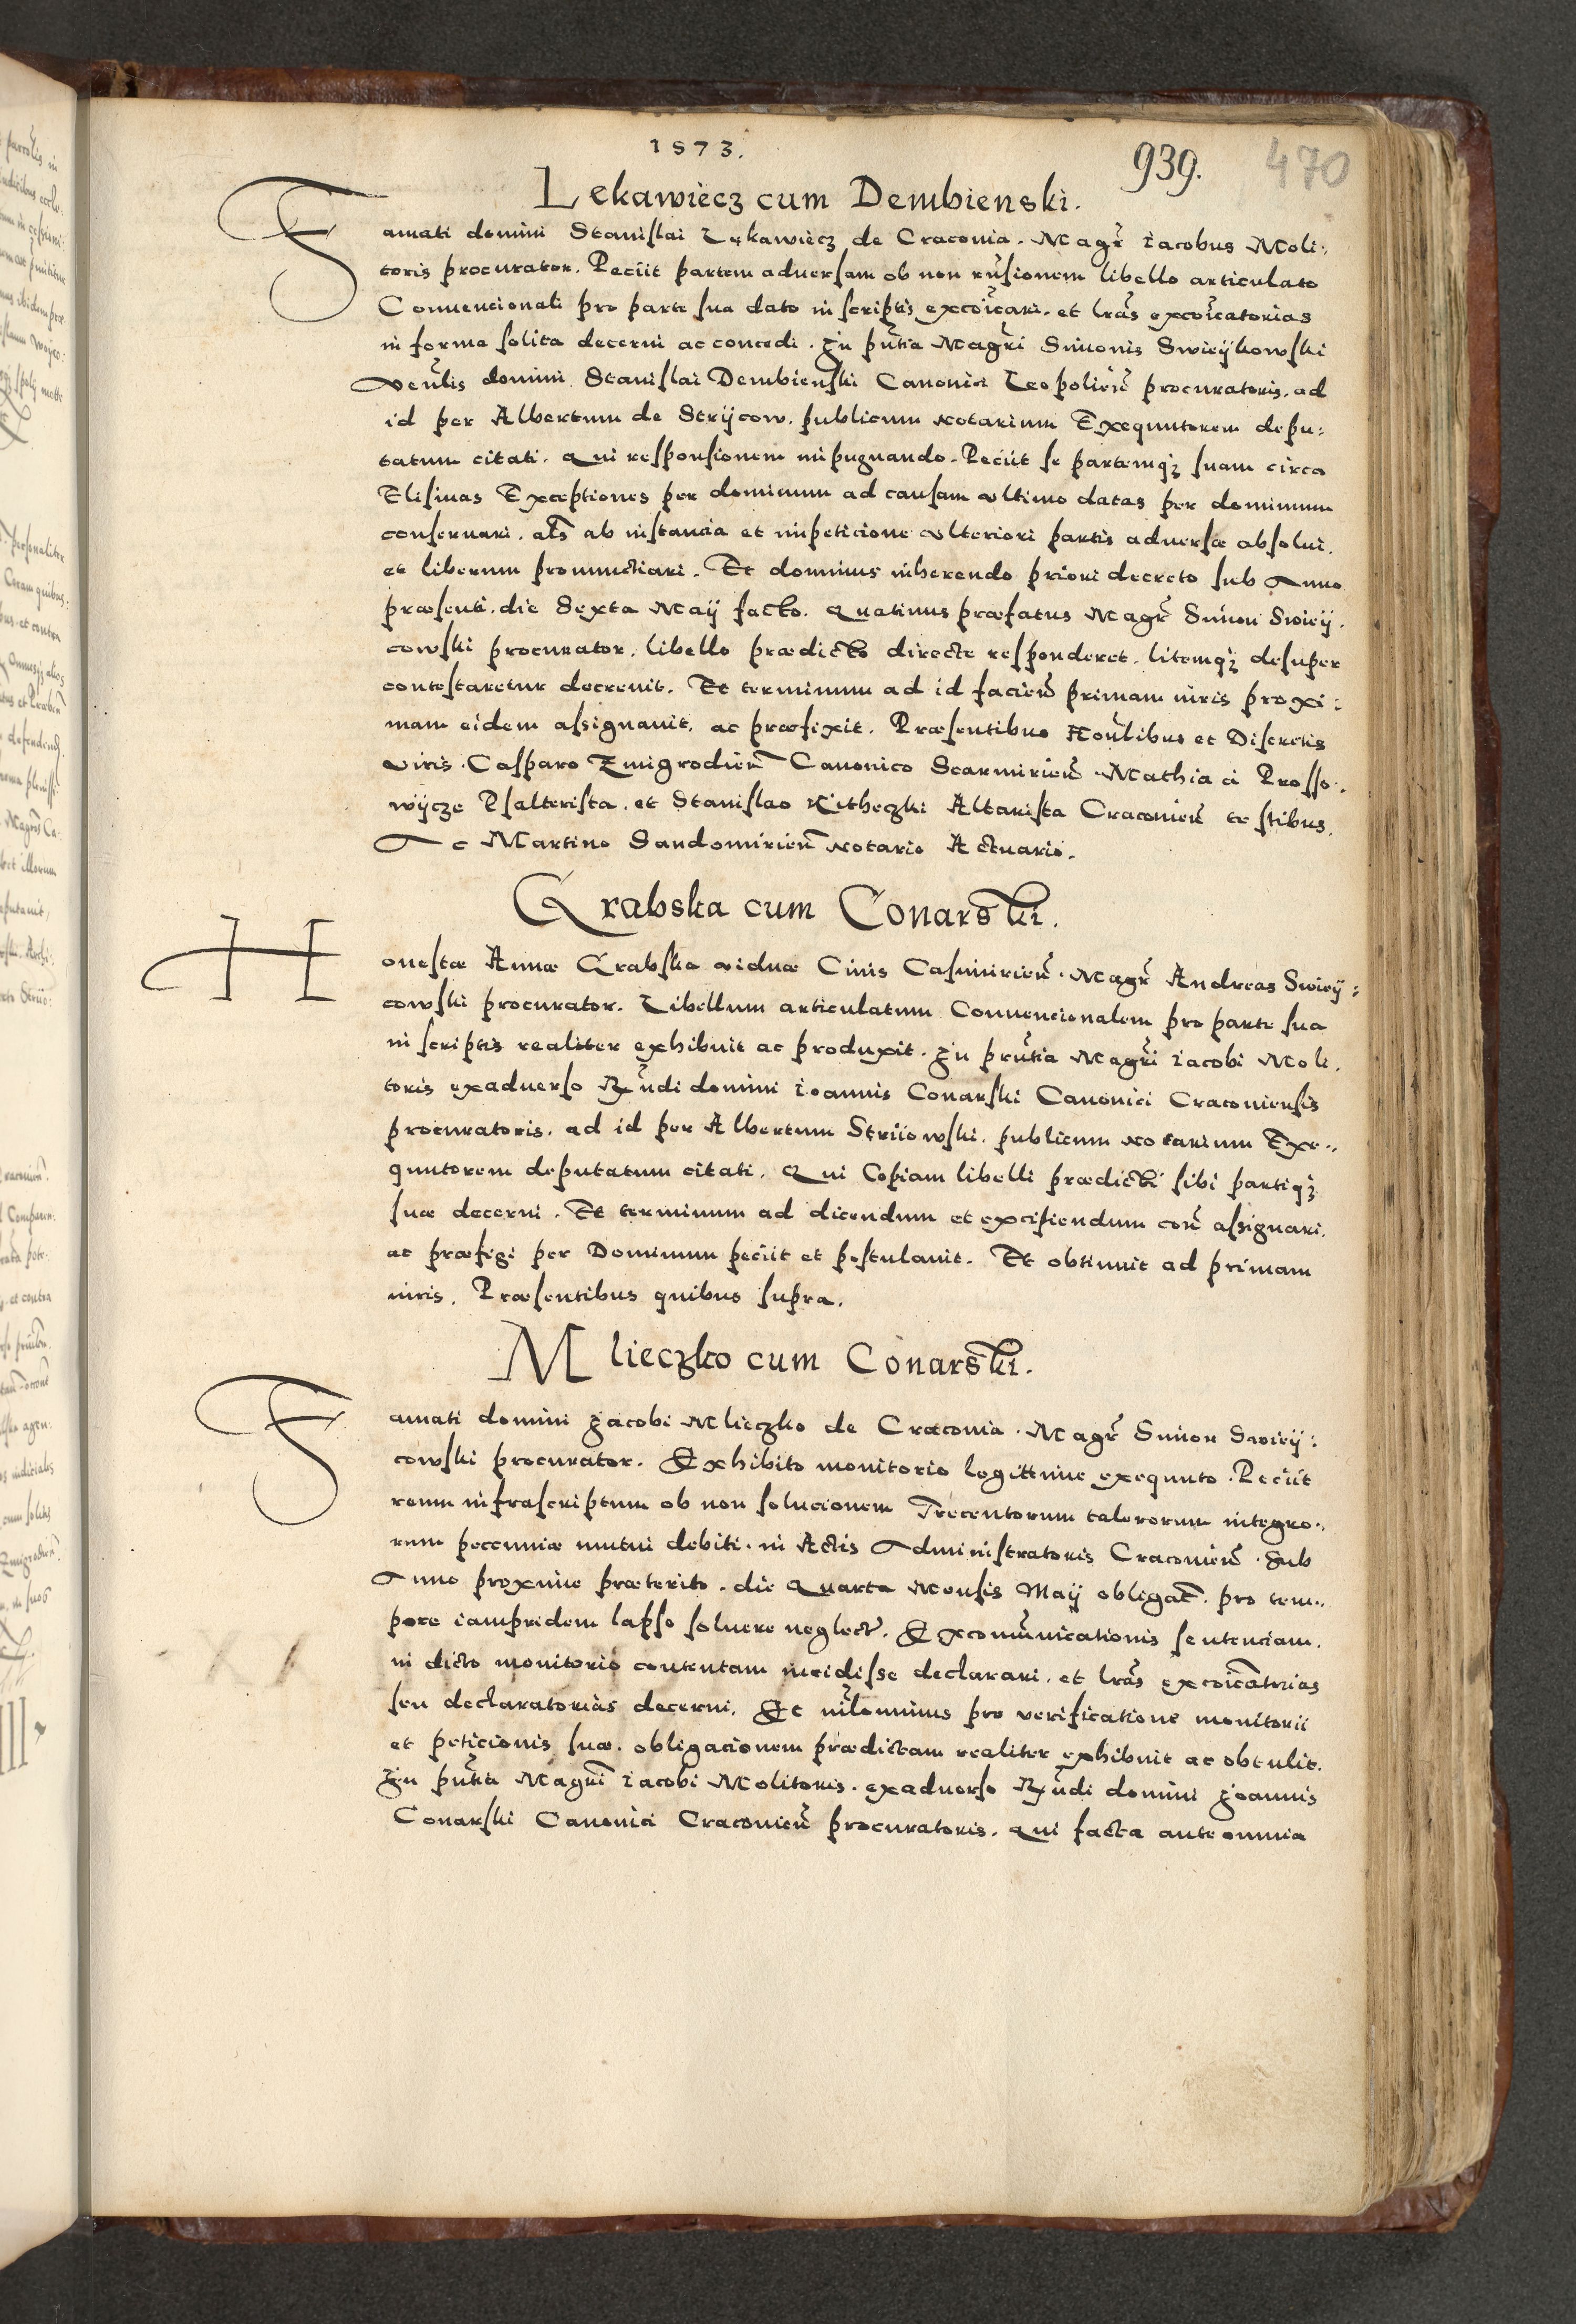 1573.
939.
470
Lekawiecz cum Dembienski.
Famati domini Stanislai Lękawiecz de Craconia. Magr̃ Iacobus Moli:
toris procurator. Peciit partem aduersam ob non rñsionem libello articulato
Conuencionali pro parte sua dato in scriptis excõicari. et lrãs excõicatorias
in forma solita decerni ac concedi. In pñtia Magrĩ Simonis Swieykowski
venlis domini Stanislai Dembienski Canonici Leopolieñ procuratoris. ad
id per Albertum de Strijcow. publicum Notarium Exequutorem depu:
tatum citati. Qui responsionem impugnando. Peciit se partemq₃ suam circa
Elisiuas Exceptiones per dominum ad causam vltimo datas per dominum
conseruari. als̃ ab instancia et impeticione vlteriori partis aduersæ absolui.
et liberum pronunctiari. Et dominus inherendo priori decreto sub Anno
præsenti. die Sexta Maij facto. Quatinus præfatus Magr̃ Simon Swieij.
cowski procurator. libello prædicto directe responderet. litemq₃ desuper
contestaretur decreuit. Et terminum ad id facieñ primam iuris proxi:
mam eidem assignauit. ac præfixit. Præsentibus Hoñlibus et Discretis
viris. Casparo Zmigrodieñ Canonico Scarmirieñ. Mathia a Prosso.
wijcze Psalterista. et Stanislao Kitheczki Altarista Cracouieñ testibus.
Ac Martino Sandomirieñ Notario Actuario.
Grabska cum Conarski.
Honestæ Annæ Grabska viduæ Ciuis Casimirieñ. Magr̃ Andreas Swieij:
cowski procurator. Libellum articulatum Conuencionalem pro parte sua
in scriptis realiter exhibuit ac produxit. In prñtia Magrĩ Iacobi Moli.
toris exaduerso Rñdi domini Ioannis Conarski Canonici Cracouiensis
procuratoris. ad id per Albertum Striiowski. publicum Notarium Exe..
quutorem deputatum citati. Qui Copiam libelli prædicti sibi partiq₃
suæ decerni. Et terminum ad dicendum et excipiendum coñ assignari.
ac præfigi per Dominum peciit et postulauit. Et obtinuit ad primam
iuris. Præsentibus quibus supra.
Mlieczko cum Conarski.
Famati domini Jacobi Mlieczko de Cracouia. Magr̃ Simon Swieij:
cowski procurator. Exhibito monitorio legittime exequuto. Peciit
reum infrascriptum ob non solucionem Trecentorum talerorum integro..
rum pecuniæ mutui debiti. in Actis Administratoris Cracouieñ. Sub
Anno proxime præterito. die Quarta Mensis Maij obligat̃. pro tem..
pore iampridem lapso soluere neglect̃. Excomũnicationis sentenciam.
in dicto monitorio contentam incidisse declarari. et lrãs excoicãtrias
seu declaratorias decerni. Et nilominus pro verificatione monitorii
et peticionis suæ. obligacionem prædictam realiter exhibuit ac obtulit.
In pñtia Magrĩ Iacobi Molitoris. exaduerso Rñdi domini Joannis
Conarski Canonici Cracouieñ procuratoris. Qui facta ante omnia